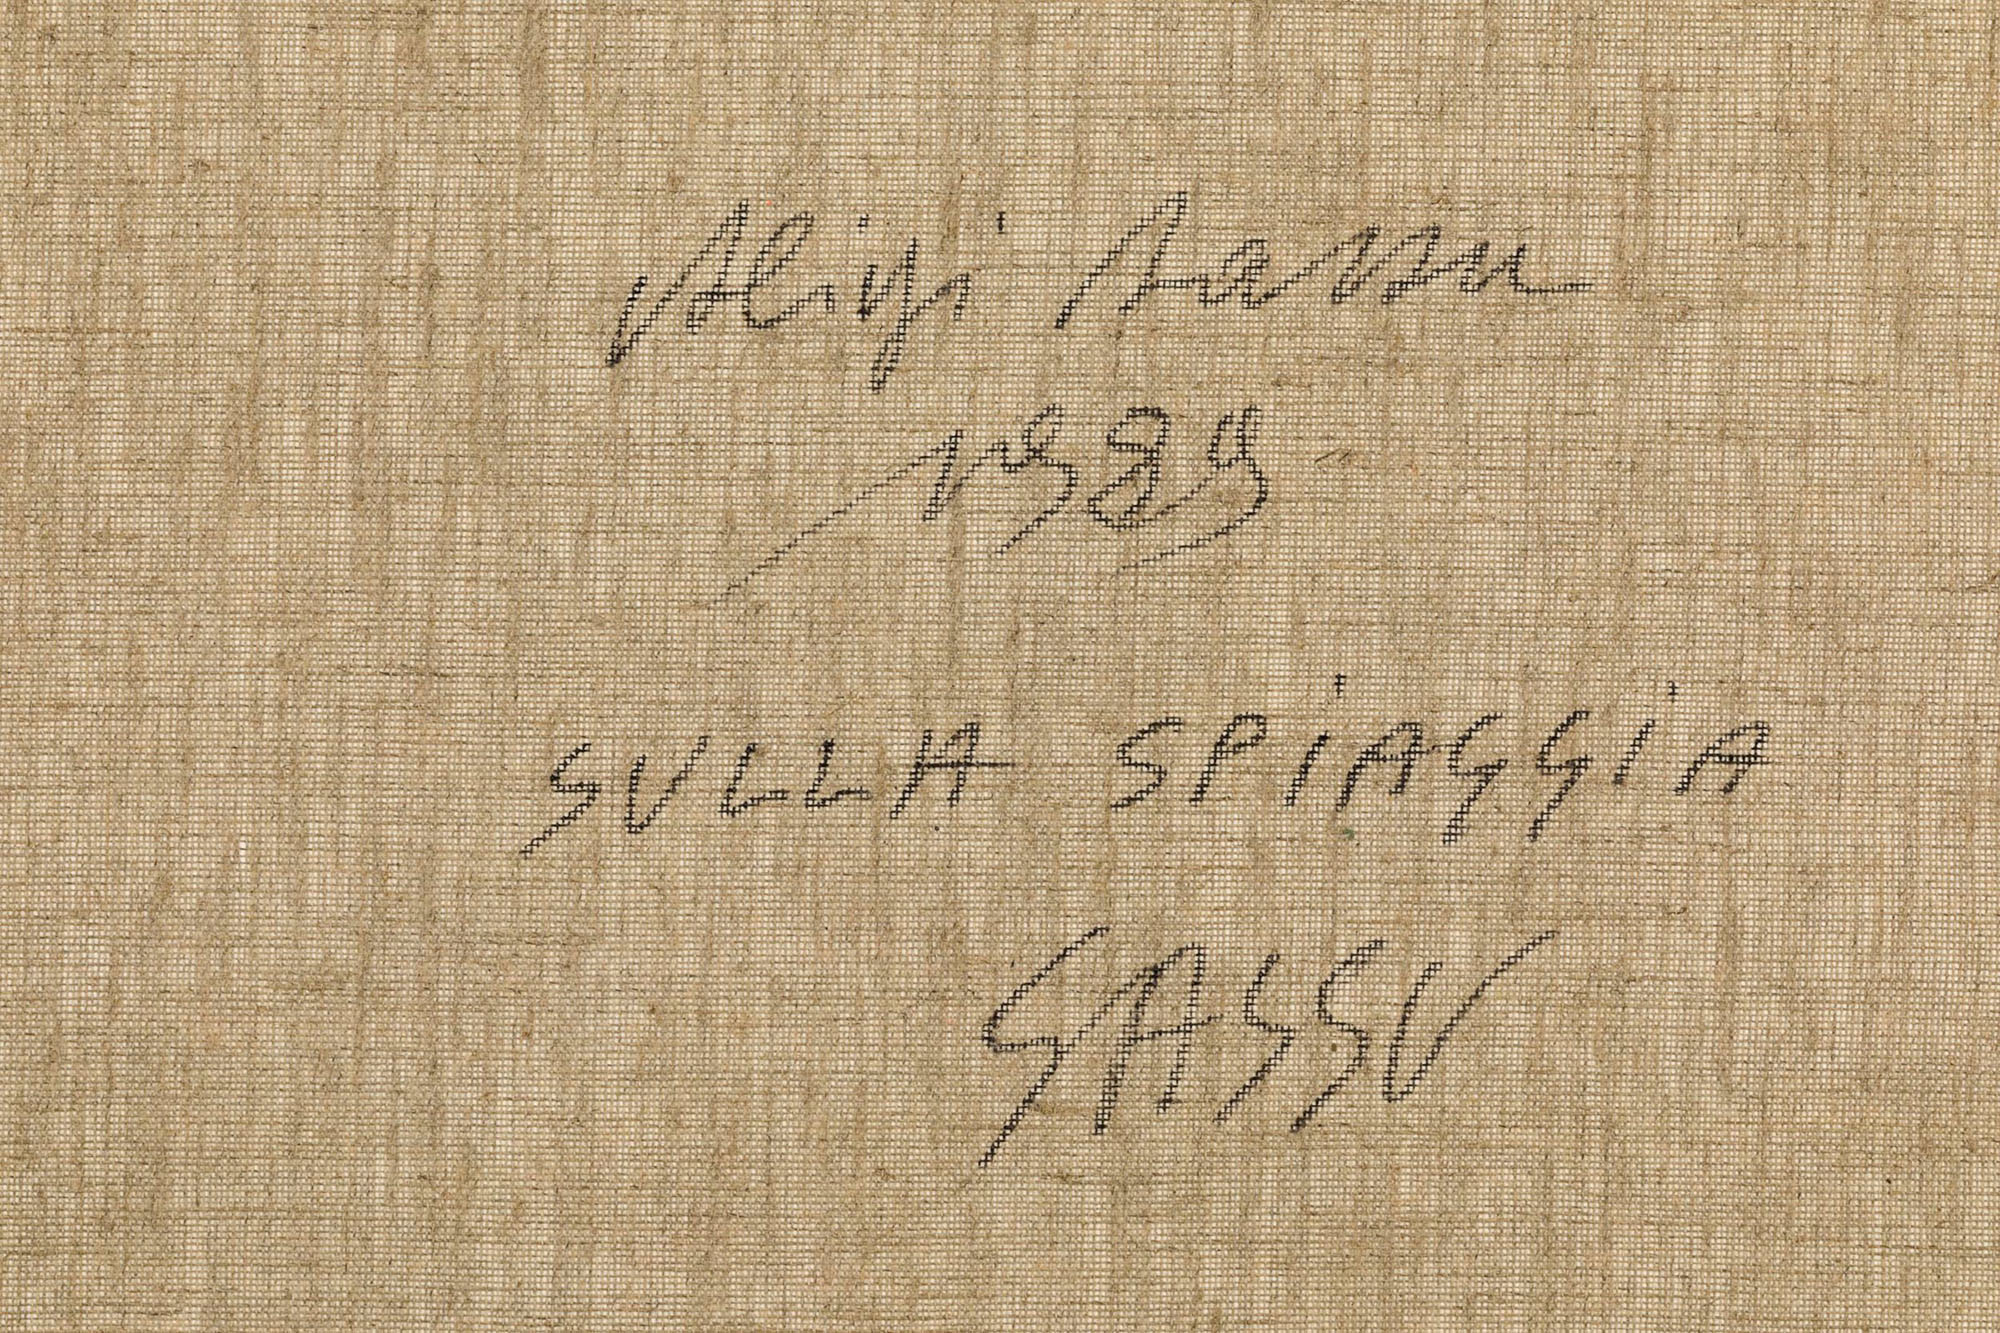 Aligi Sassu
1989
SULLA SPiAGGiA
SASSU